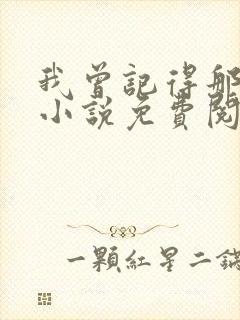 我曾記得那
小說免費閱
一顆紅星二鍋